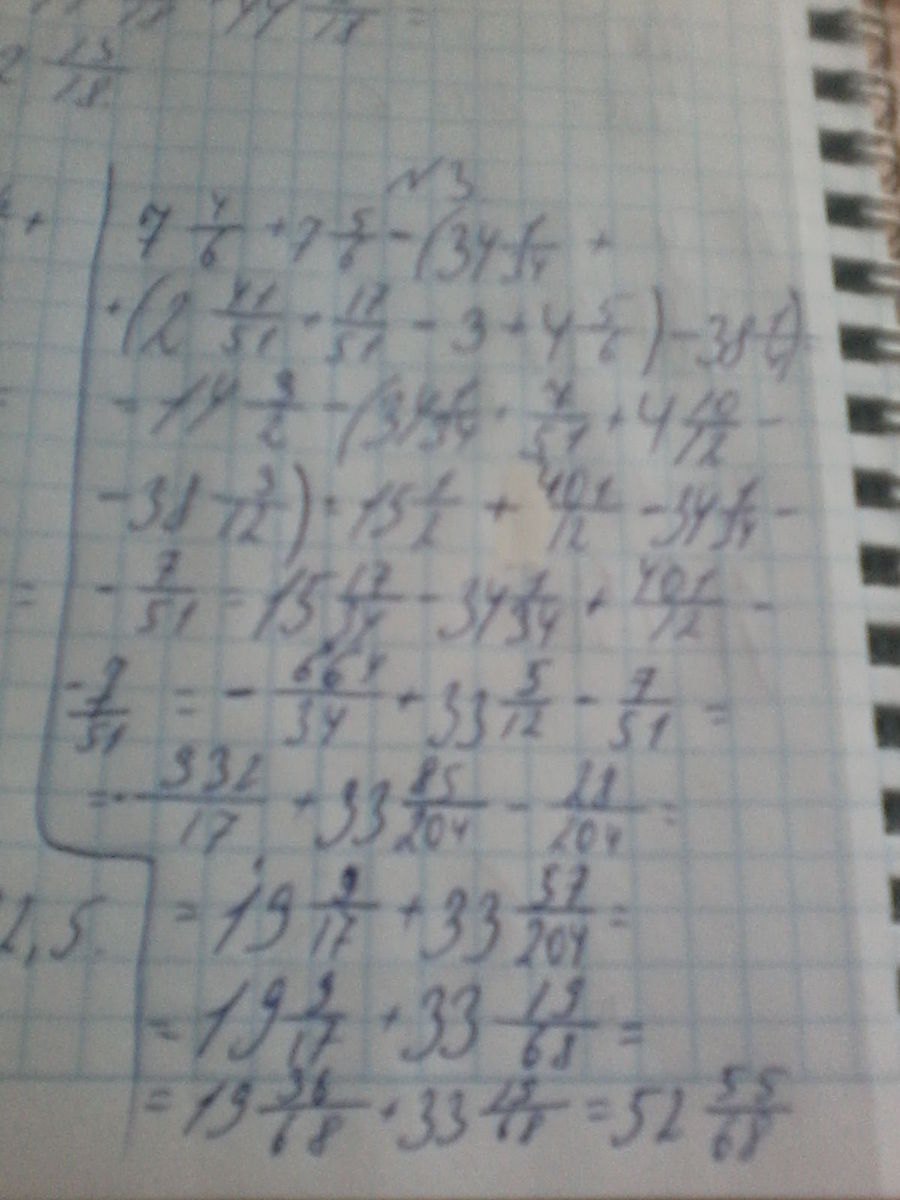 2 13/18
N3
7 4/6 + 7 5/6 - (34 1/34 +
+ (2 41/51 + 17/51 - 3 + 4 5/6) - 38 1/4) =
= 14 9/2 - (34 1/34 + 7/51 + 4 10/12 -
- 38 3/12) = 15 1/2 + 401/12 - 34 1/34 -
- 7/51 = 15 17/34 - 34 1/34 + 401/12 -
- 7/51 = - 664/34 + 33 5/12 - 7/51 =
= - 332/17 + 33 85/204 - 28/204 =
2,5.
= 19 9/17 + 33 57/204 =
= 19 9/17 + 33 19/68 =
= 19 36/68 + 33 19/68 = 52 55/68